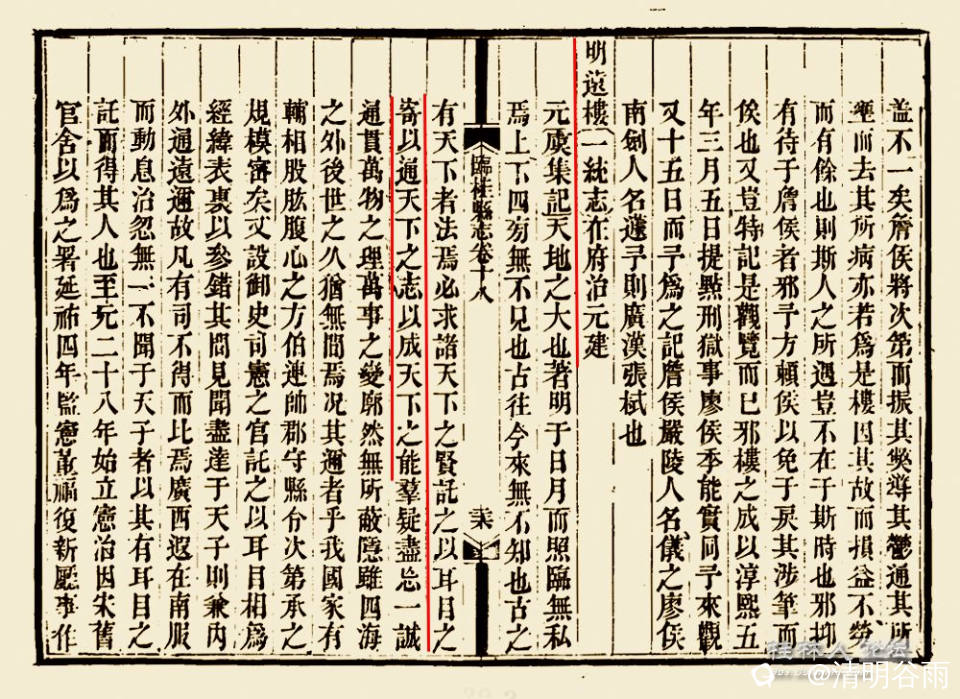 蓋不一矣詹侯將次第而振其獘導其鬱通其所
壅而去其所病亦若爲是樓因其故而損益不勞
而有餘也則斯人之所遇豈不在于斯時也邪抑
有待于詹侯者邪予方賴侯以免于戾其涉筆而
俟也又豈特記是觀覽而已邪樓之成以淳熙五
年三月五日提點刑獄事廖侯季能實同予來觀
又十五日而予爲之記詹侯嚴陵人名儀之廖侯
南劍人名蘧予則廣漢張栻也
明遠樓一統志在府治元建
元虞集記天地之大也著明于日月而照臨無私
焉上下四旁無不見也古往今來無不知也古之
臨桂縣志卷十八
有天下者法焉必求諸天下之賢託之以耳目之
寄以通天下之志以成天下之能羣疑盡忘一誠
通貫萬物之理萬事之變廓然無所蔽隱雖四海
之外後世之久猶無間焉况其邇者乎我國家有
輔相股肱腹心之方伯連帥郡守縣令次第承之
規模審矣又設御史司憲之官託之以耳目相爲
經緯表裏以參錯其間見聞盡達于天子則兼内
外通遠邇故凡有司不得而比焉廣西遐在南服
而動息治忽無一不聞于天子者以其有耳目之
託而得其人也至元二十八年始立憲治因宋舊
官舍以爲之署延祐四年監憲董福復新廳事作
桂林人论坛
@清明谷雨